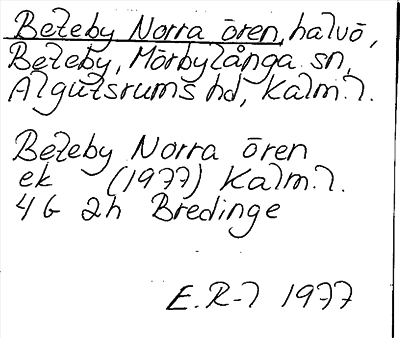 Beteby Norra ören, halvö,
Beteby, Mörbylånga sn,
Algutsrums hd, Kalm. l.
Beteby Norra ören
ek (1977) Kalm. l.
4 G 2h Bredinge
E. R-l 1977